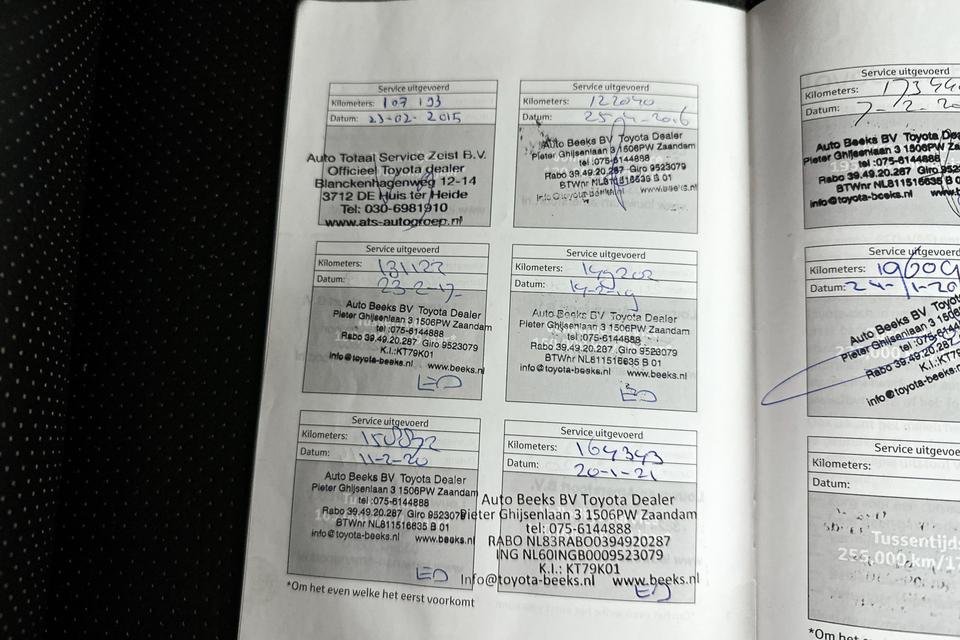 Service uitgevoerd
Kilometers: 107 193
Datum: 23-02-2015
Auto Totaal Service Zeist B.V.
Officieel Toyota dealer
Blanckenhagenweg 12-14
3712 DE Huis ter Heide
Tel: 030-6981910
www.ats-autogroep.nl
Service uitgevoerd
Kilometers: 122040
Datum: 25-4-2016
Auto Beeks BV Toyota Dealer
Pieter Ghijsenlaan 3 1506PW Zaandam
tel :075-6144888
Rabo 39.49.20.287 Giro 9523079
BTWnr NL811516635 B 01
info@toyota-beeks.nl www.beeks.nl
Service uitgevoerd
Kilometers: 131122
Datum: 23-2-17-
Auto Beeks BV Toyota Dealer
Pieter Ghijsenlaan 3 1506PW Zaandam
tel :075-6144888
Rabo 39.49.20.287 Giro 9523079
K.I.:KT79K01
info@toyota-beeks.nl www.beeks.nl
Service uitgevoerd
Kilometers: 149202
Datum: 14-2-19
Auto Beeks BV Toyota Dealer
Pieter Ghijsenlaan 3 1506PW Zaandam
tel :075-6144888
Rabo 39.49.20.287 Giro 9523079
BTWnr NL811516635 B 01
info@toyota-beeks.nl www.beeks.nl
Service uitgevoerd
Kilometers:
Datum: 11-2-20
Auto Beeks BV Toyota Dealer
Pieter Ghijsenlaan 3 1506PW Zaandam
tel :075-6144888
Rabo 39.49.20.287 Giro 9523079
BTWnr NL811516635 B 01
info@toyota-beeks.nl www.beeks.nl
Service uitgevoerd
Kilometers: 164343
Datum: 20-1-21
Auto Beeks BV Toyota Dealer
Pieter Ghijsenlaan 3 1506PW Zaandam
tel: 075-6144888
RABO NL83RABO0394920287
ING NL60INGB0009523079
K.I.: KT79K01
Info@toyota-beeks.nl www.beeks.nl
*Om het even welke het eerst voorkomt
Service uitgevoerd
Kilometers: 17344
Datum: 7-2-20
Auto Beeks BV Toyota De
Pieter Ghijsenlaan 3 1506PW Za
tel :075-6144888
Rabo 39.49.20.287 Giro 9523
BTWnr NL811516635 B 01
info@toyota-beeks.nl www.be
Service uitgevoerd
Kilometers: 19609
Datum: 24-1-20
Auto Beeks BV Toyot
Pieter Ghijsenlaan 3 1506
tel :075-61448
Rabo 39.49.20.287
K.I.:KT79
info@toyota-beeks.n
Service uitgevoe
Kilometers:
Datum:
Tussentijds
255.000 km/17
*Om het